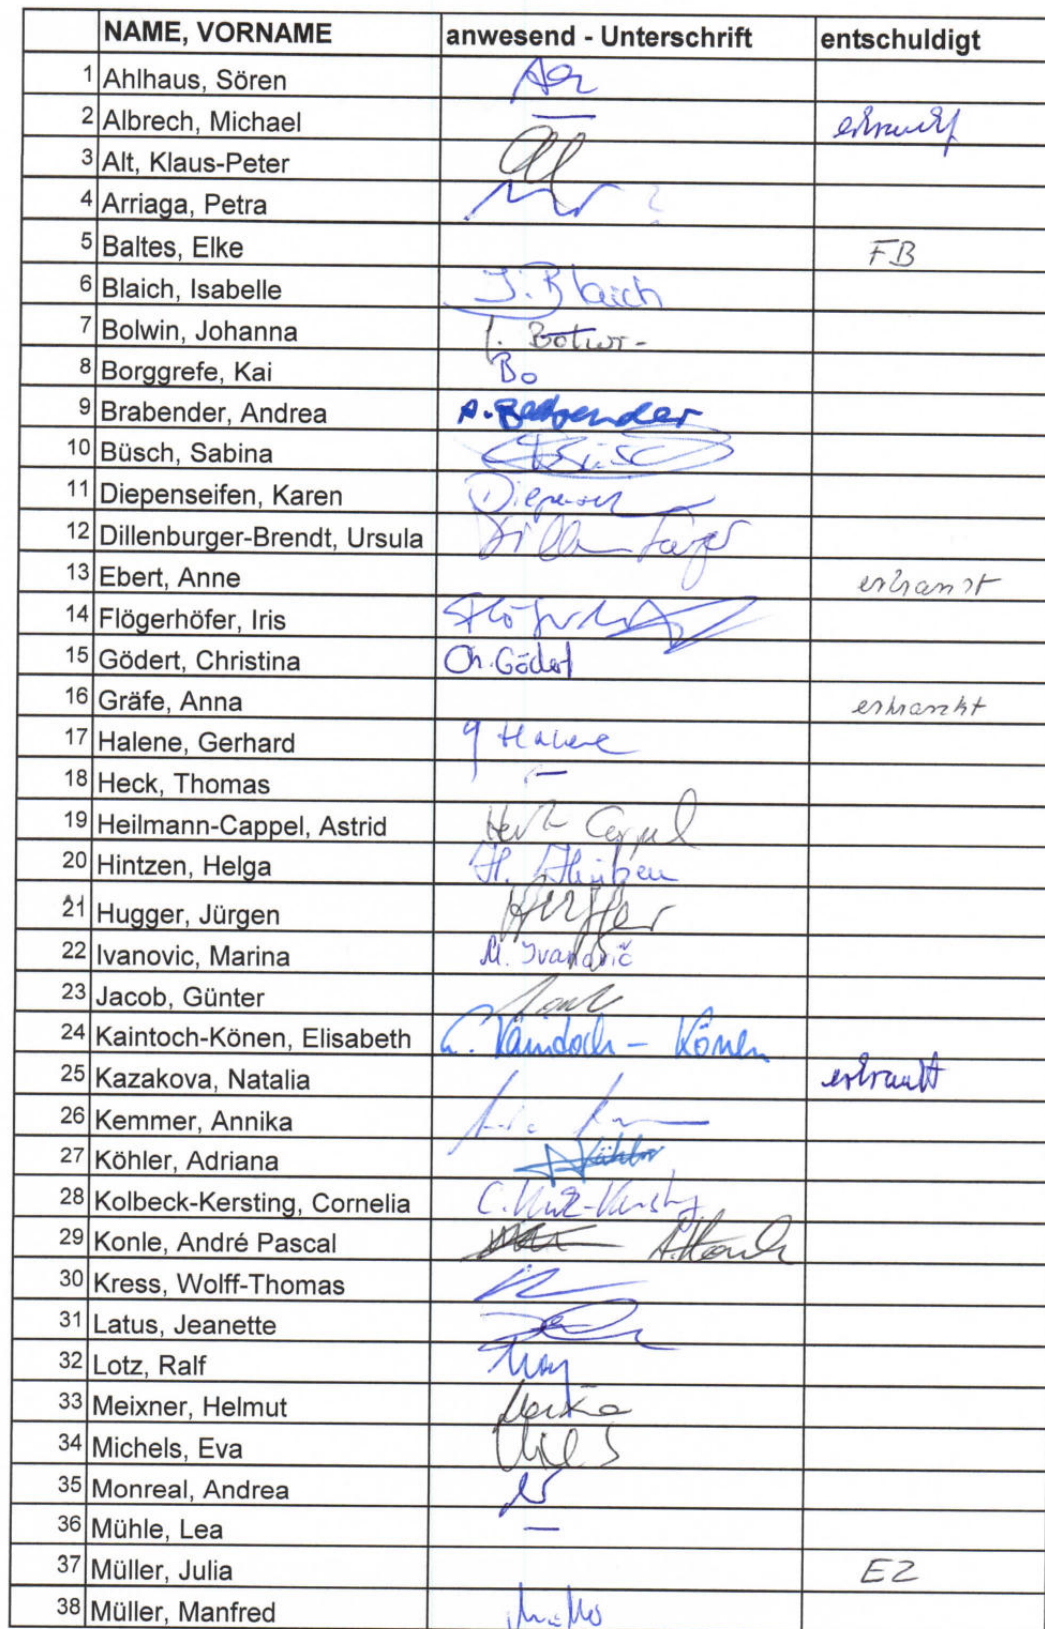 NAME, VORNAME anwesend - Unterschrift entschuldigt
1 Ahlhaus, Sören
2 Albrech, Michael — erkrankt
3 Alt, Klaus-Peter
4 Arriaga, Petra ?
5 Baltes, Elke FB
6 Blaich, Isabelle I. Blaich
7 Bolwin, Johanna
8 Borggrefe, Kai Bo
9 Brabender, Andrea A. Brabender
10 Büsch, Sabina Büsch
11 Diepenseifen, Karen
12 Dillenburger-Brendt, Ursula
13 Ebert, Anne erkrankt
14 Flögerhöfer, Iris
15 Gödert, Christina Ch. Gödert
16 Gräfe, Anna erkrankt
17 Halene, Gerhard G Halene
18 Heck, Thomas —
19 Heilmann-Cappel, Astrid
20 Hintzen, Helga H. Hintzen
21 Hugger, Jürgen
22 Ivanovic, Marina M. Ivanović
23 Jacob, Günter
24 Kaintoch-Könen, Elisabeth E. Kaintoch - Könen
25 Kazakova, Natalia erkrankt
26 Kemmer, Annika
27 Köhler, Adriana Köhler
28 Kolbeck-Kersting, Cornelia
29 Konle, André Pascal
30 Kress, Wolff-Thomas
31 Latus, Jeanette
32 Lotz, Ralf
33 Meixner, Helmut
34 Michels, Eva
35 Monreal, Andrea
36 Mühle, Lea —
37 Müller, Julia EZ
38 Müller, Manfred